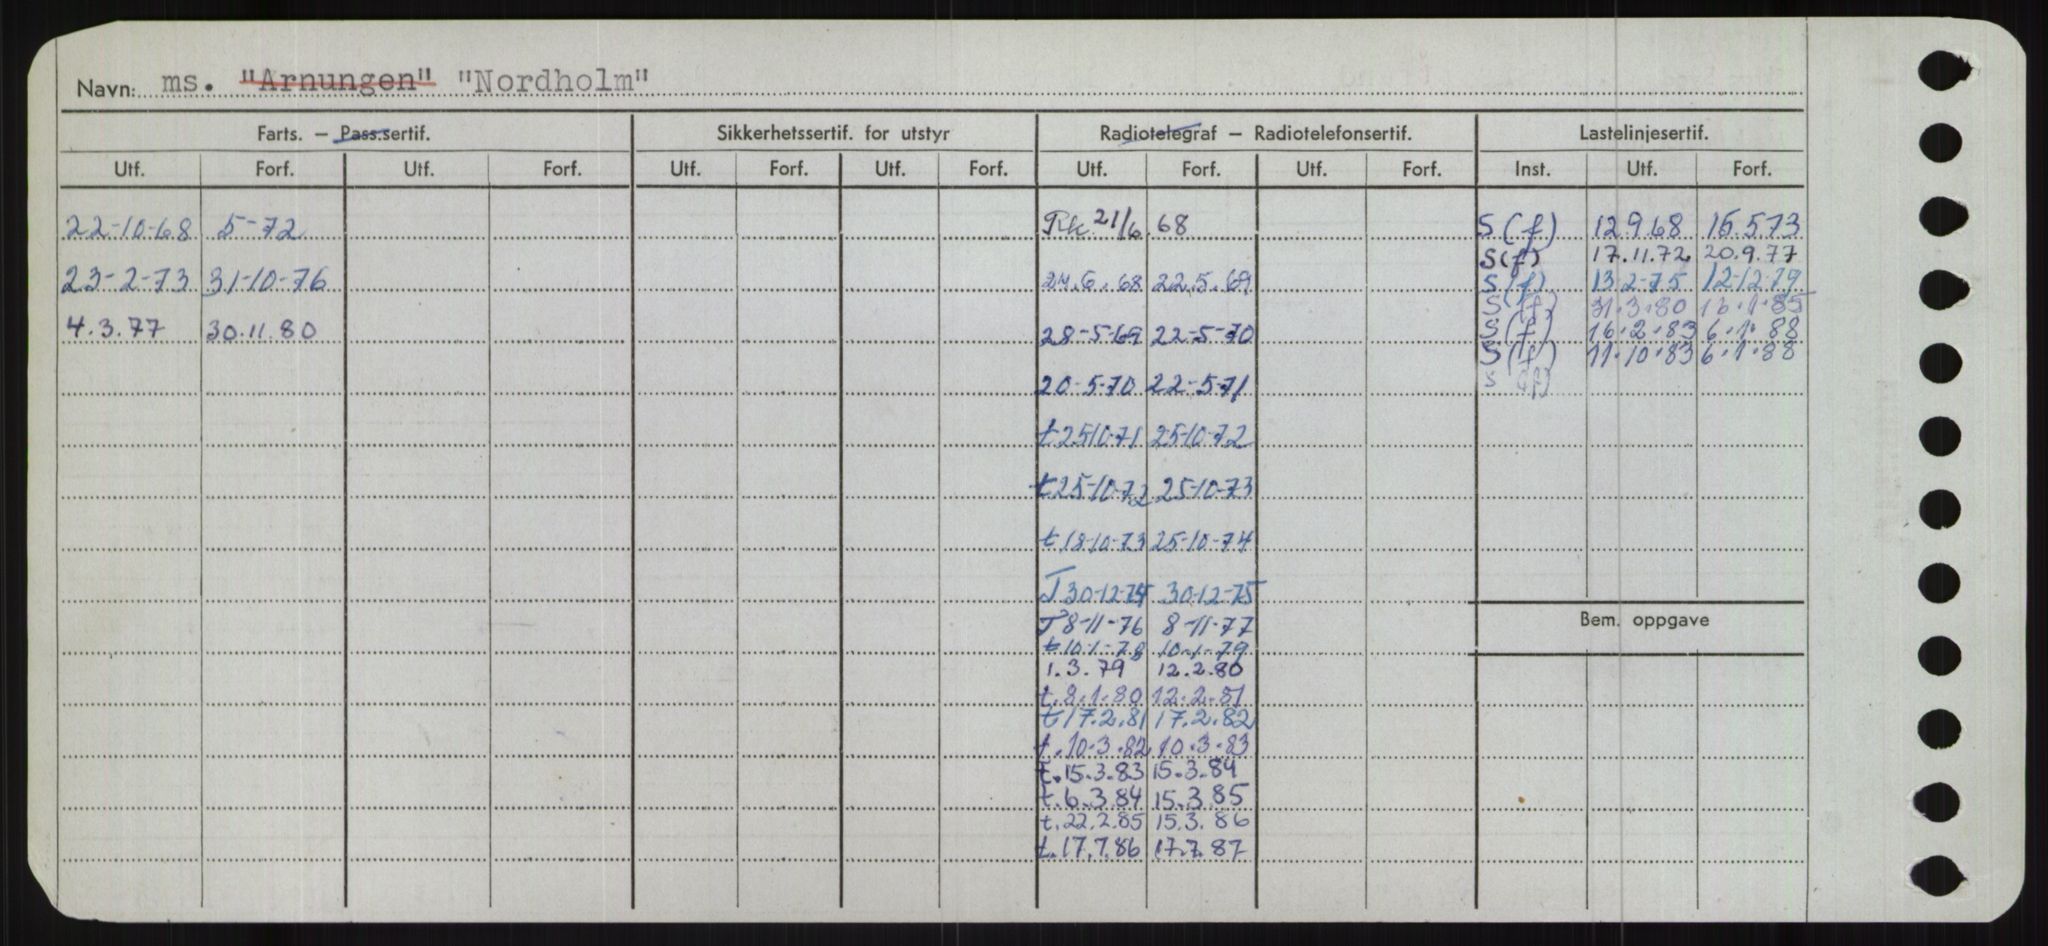 Navn: ms. "Arnungen" "Nordholm"
Farts. – Pass.sertif. Sikkerhetssertif. for utstyr Radiotelegraf – Radiotelefonsertif. Lastelinjesertif.
Utf. Forf. Utf. Forf. Utf. Forf. Utf. Forf. Utf. Forf. Utf. Forf. Inst. Utf. Forf.
22-10-68 5-72 21/6.68 S(f) 12.9.68 15.5.73
S(f) 17.11.72 20.9.77
23-2-73 31-10-76 24.6.68 22.5.69 S(f) 13-2-75 12-12-79
S(f) 21.3.80 16.1.85
4.3.77 30.11.80 28-5-69 22-5-70 S(f) 16.2.83 6.1.88
S(f) 11.10.83 6.1.88
20-5-70 22-5-71 S (f)
t 25-10-71 25-10-72
t 25-10-72 25-10-73
t 18-10-73 25-10-74
T 30-12-74 30-12-75
Bem. oppgave
T 8-11-76 8-11-77
t 10-1-78 10-1-79
1.3.79 12.2.80
t.8.1.80 12.2.81
t 17.2.81 17.2.82
t.10.3.82 10.3.83
t.15.3.83 15.3.84
t.6.3.84 15.3.85
t.22.2.85 15.3.86
t.17.7.86 17.7.87